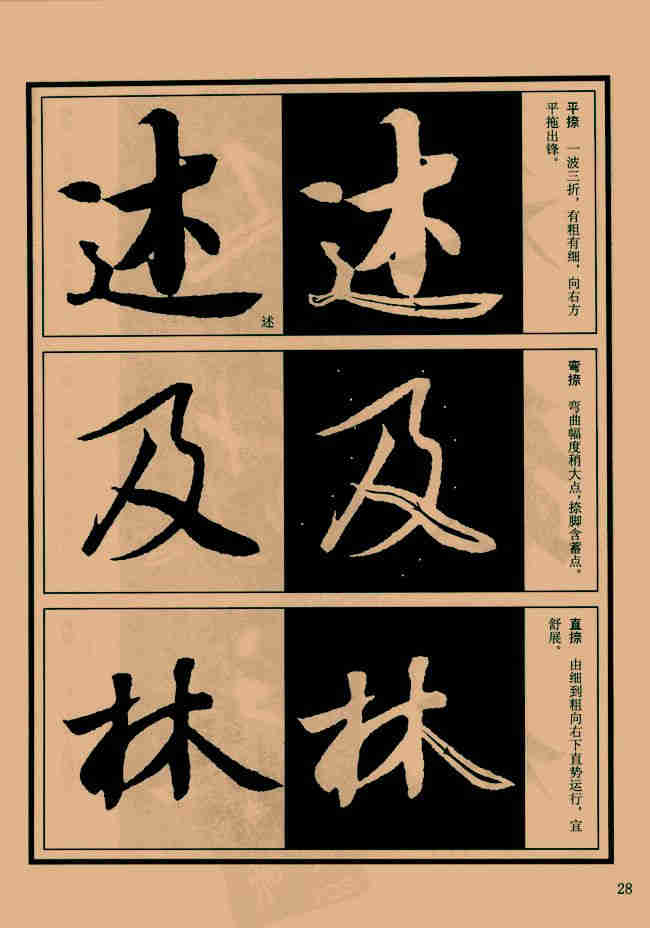 平捺　一波三折，有粗有细，向右方
平拖出锋。
述 述
述
弯捺　弯曲幅度稍大点，捺脚含蓄点。
及 及
直捺　由细到粗向右下直势运行，宜
舒展。
林 林
28